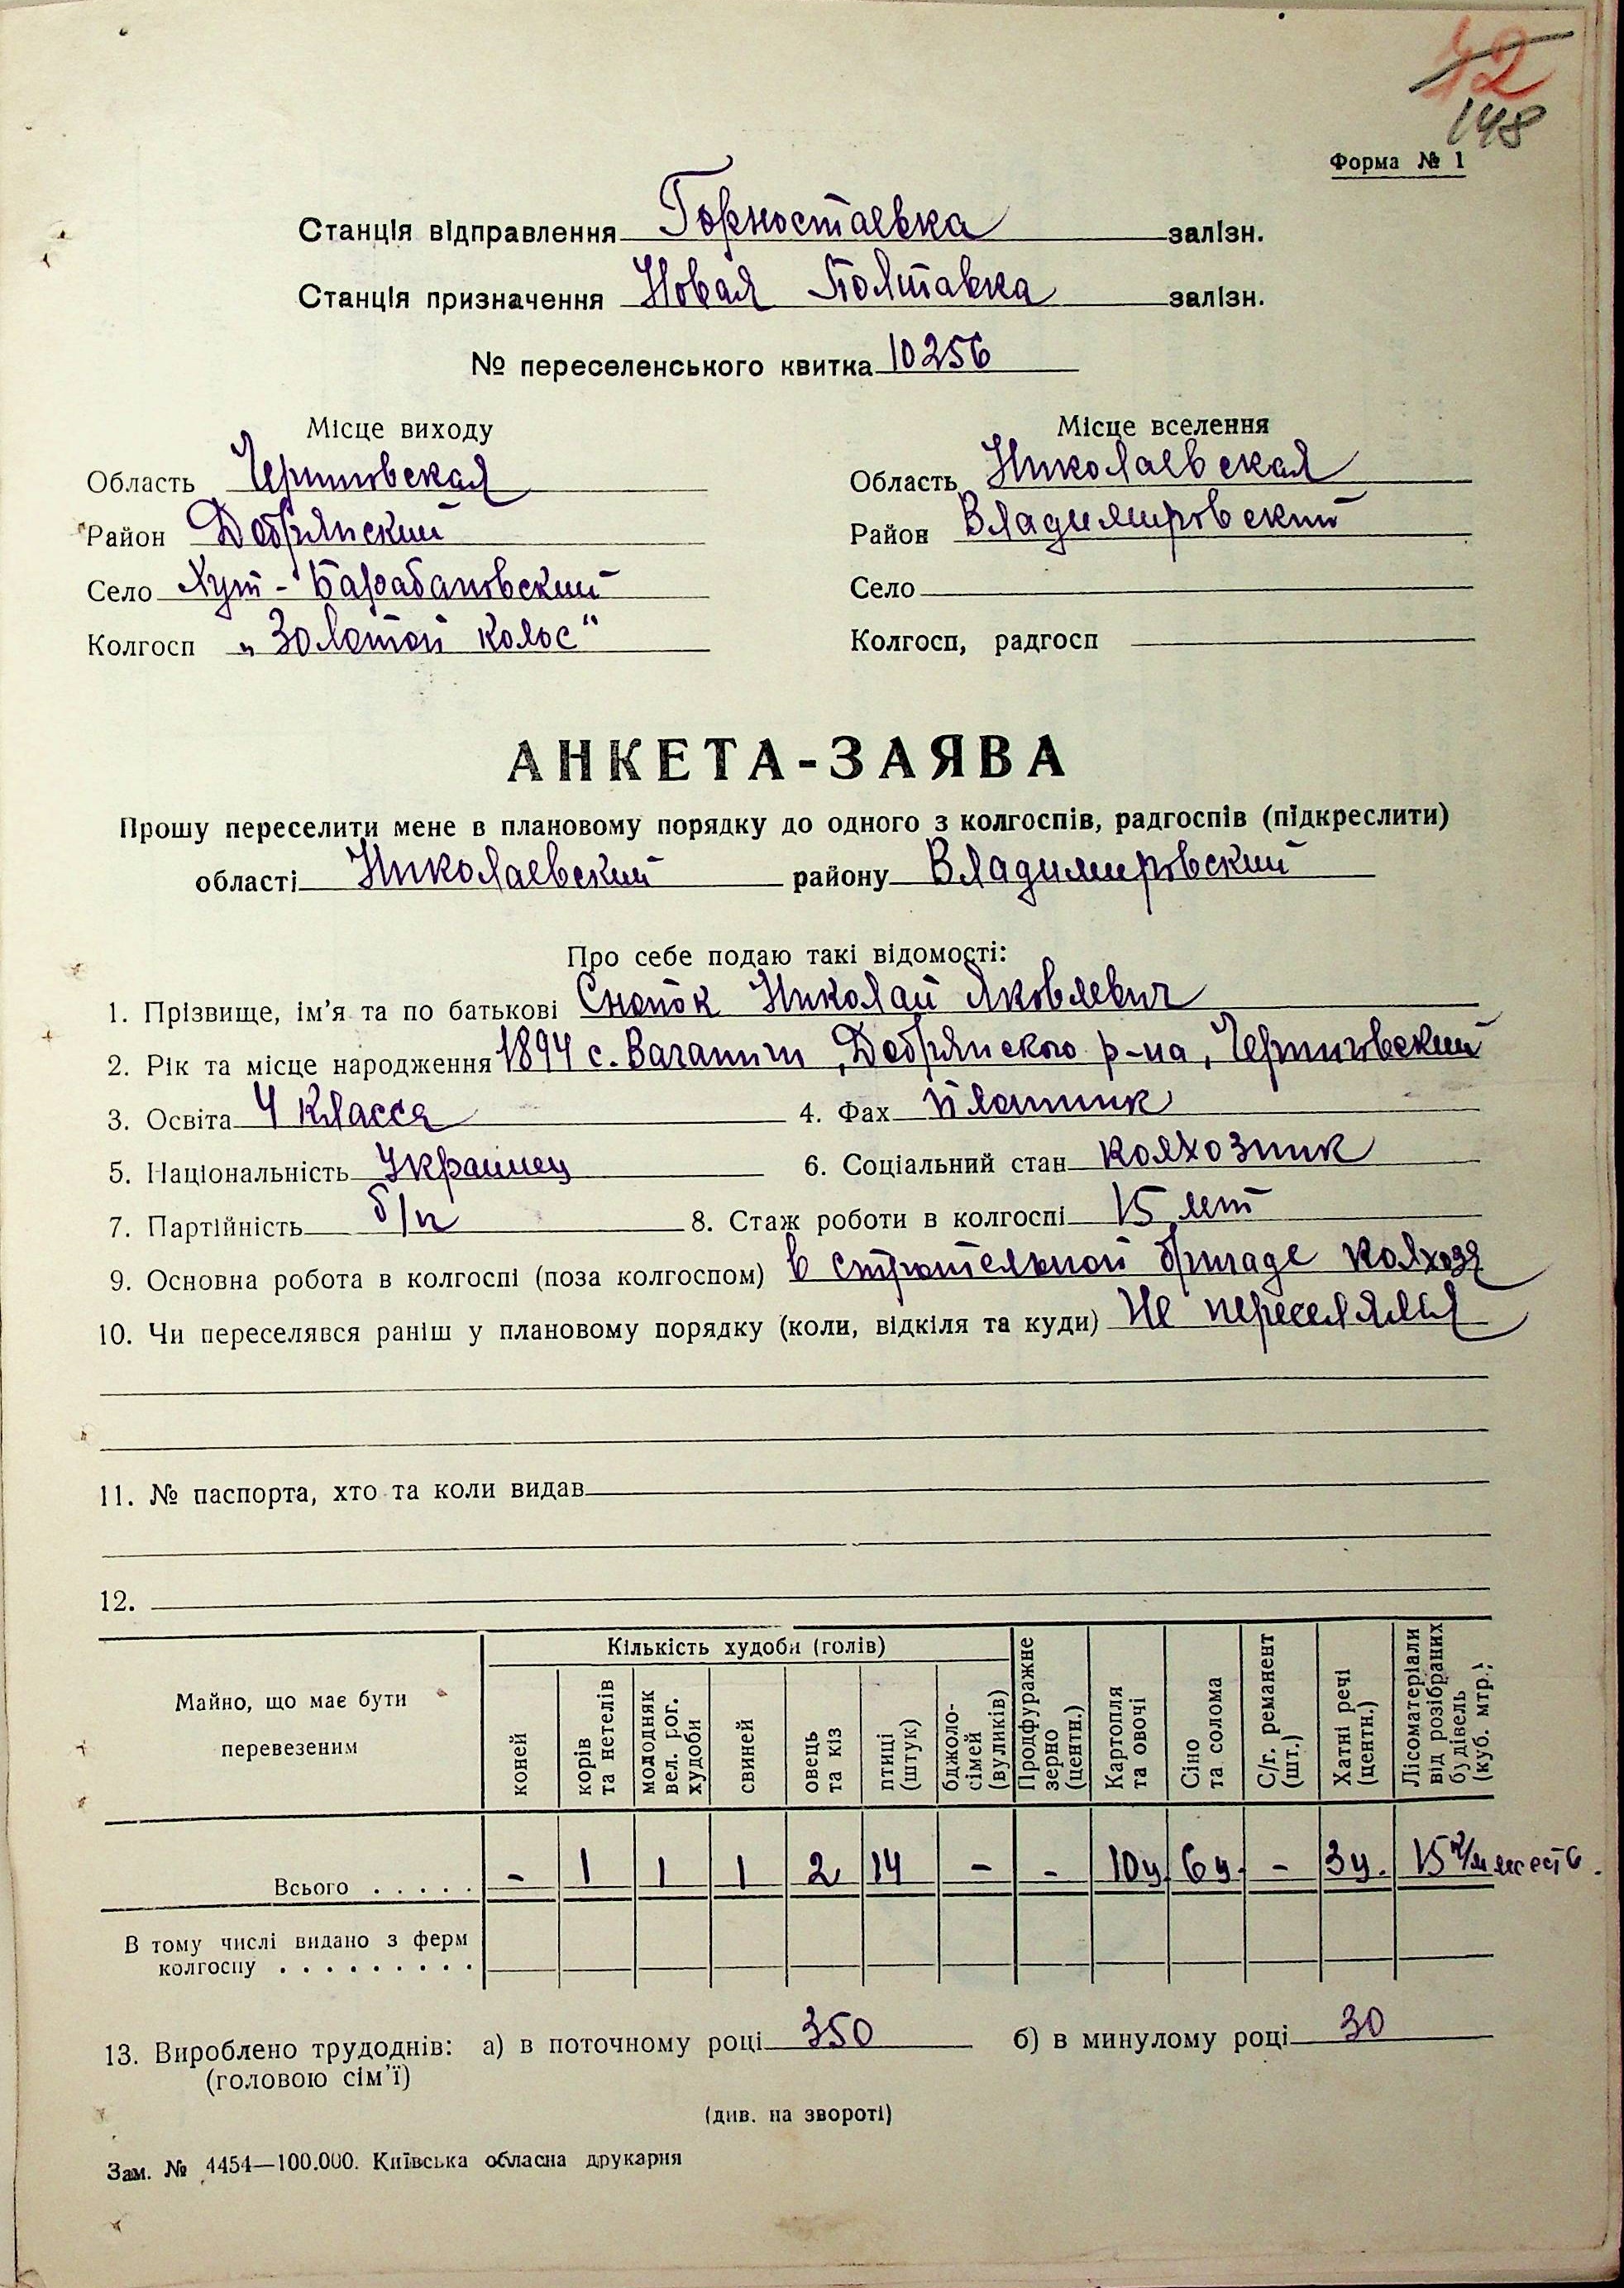 42
148
Форма № 1
Станція відправлення Горностаевка залізн.
Станція призначення Новая Полтавка залізн.
№ переселенського квитка 10256
Місце виходу
Область Черниговская
Район Добрянский
Село Хут-Барабановский
Колгосп „Золотой колос“
Місце вселення
Область Николаевская
Район Владимировский
Село
Колгосп, радгосп
АНКЕТА-ЗАЯВА
Прошу переселити мене в плановому порядку до одного з колгоспів, радгоспів (підкреслити)
області Николаевский району Владимировский
Про себе подаю такі відомості:
1. Прізвище, ім'я та по батькові Снопок Николай Яковлевич
2. Рік та місце народження 1894 с. Ваганичи, Добрянского р-на, Черниговский
3. Освіта 4 класса 4. Фах Плотник
5. Національність Украинец 6. Соціальний стан колхозник
7. Партійність б/п 8. Стаж роботи в колгоспі 15 лет
9. Основна робота в колгоспі (поза колгоспом) в строительной бригаде колхоза
10. Чи переселявся раніш у плановому порядку (коли, відкіля та куди) Не переселялся
11. № паспорта, хто та коли видав
12.
Майно, що має бути перевезеним
Кількість худоби (голів)
коней
корів та нетелів
молодняк вел. рог. худоби
свиней
овець та кіз
птиці (штук)
бджоло-сімей (вуликів)
Продфуражне зерно (центн.)
Картопля та овочі
Сіно та солома
С/г. реманент (шт.)
Хатні речі (центн.)
Лісоматеріали від розібраних будівель (куб. мтр.)
Всього . . . . . - 1 1 1 2 14 - - 10ц. 6ц. - 3ц. 15 к/м
В тому числі видано з ферм
колгоспу . . . . . . . . .
13. Вироблено трудоднів: а) в поточному році 350 б) в минулому році 30
(головою сім'ї)
(див. на звороті)
Зам. № 4454—100.000. Київська обласна друкарня